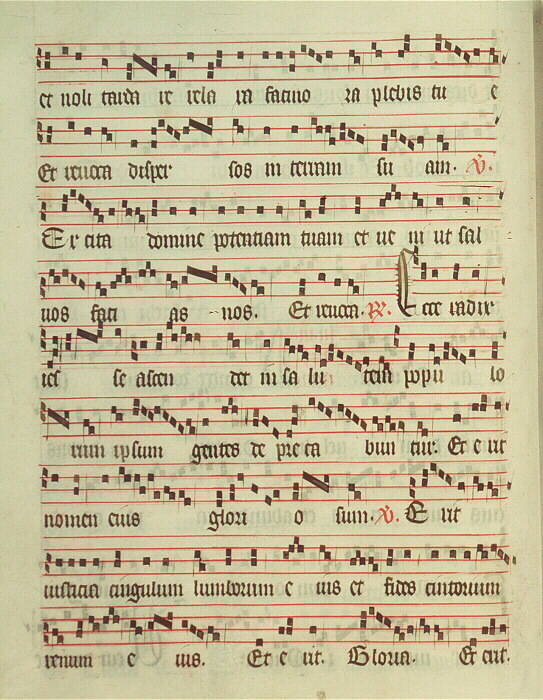 et noli tarda re rela xa facino ra plebis tu e
Et revoca disper sos in terram su am. V.
Ex cita domine potentiam tuam et ve ni ut sal
vos faci as nos. Et revoca. R. Ecce radix
ies se ascen det in sa lu tem popu lo
rum ipsum gentes de preca bun tur. Et e rit
nomen eius glori o sum. V. E rit
iusticia cingulum lumborum e ius et fides cinctorium
renum e ius. Et e rit. Gloria. Et erit.